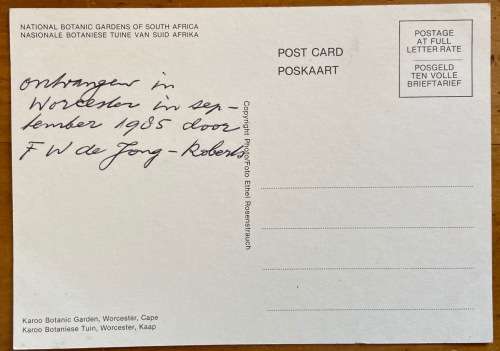 NATIONAL BOTANIC GARDENS OF SOUTH AFRICA
NASIONALE BOTANIESE TUINE VAN SUID AFRIKA
ontvangen in
Worcester in sep-
tember 1985 door
F W de Jong - Roberts
Karoo Botanic Garden, Worcester, Cape
Karoo Botaniese Tuin, Worcester, Kaap
Copyright Photo/Foto Ethel Rosenstrauch
POST CARD
POSKAART
POSTAGE
AT FULL
LETTER RATE
POSGELD
TEN VOLLE
BRIEFTARIEF